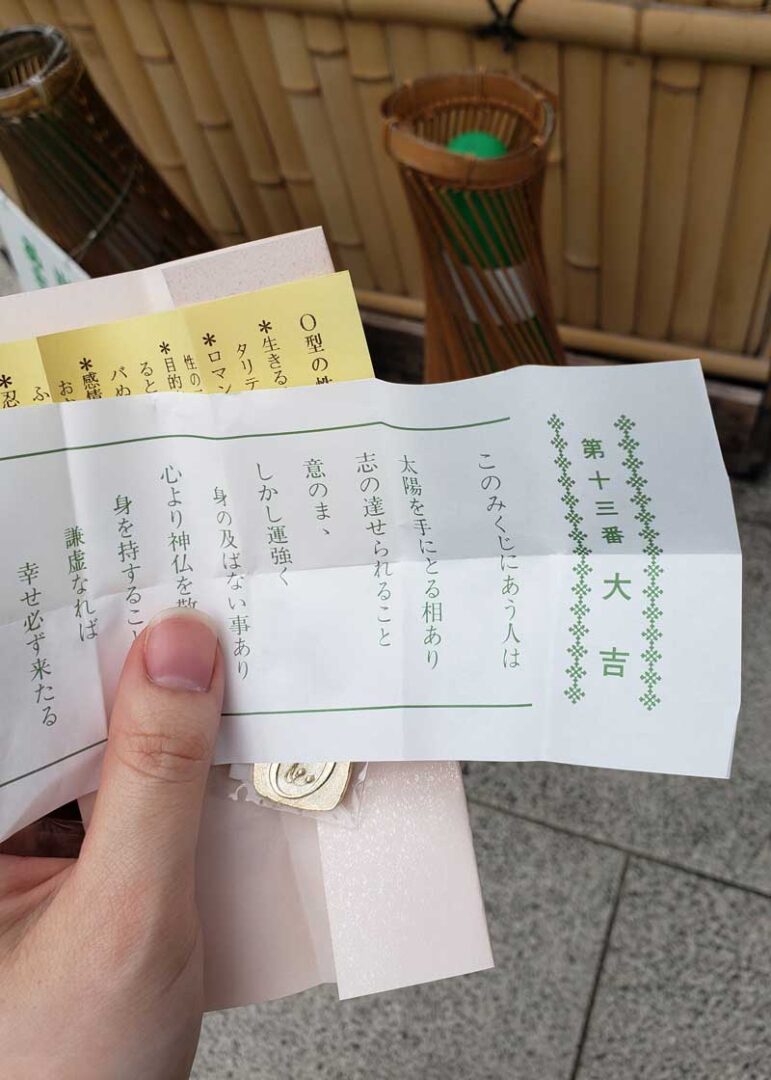 第十三番 大吉
このみくじにあう人は
太陽を手にとる相あり
志の達せられること
意のまゝ
しかし運強く
身の及ばない事あり
心より神仏を
身を持するこ
謙虚なれば
幸せ必ず来たる
O型の性
*生きる
タリテ
*ロマン
性の
*目的
ると
*感情
お
ふ
*忍